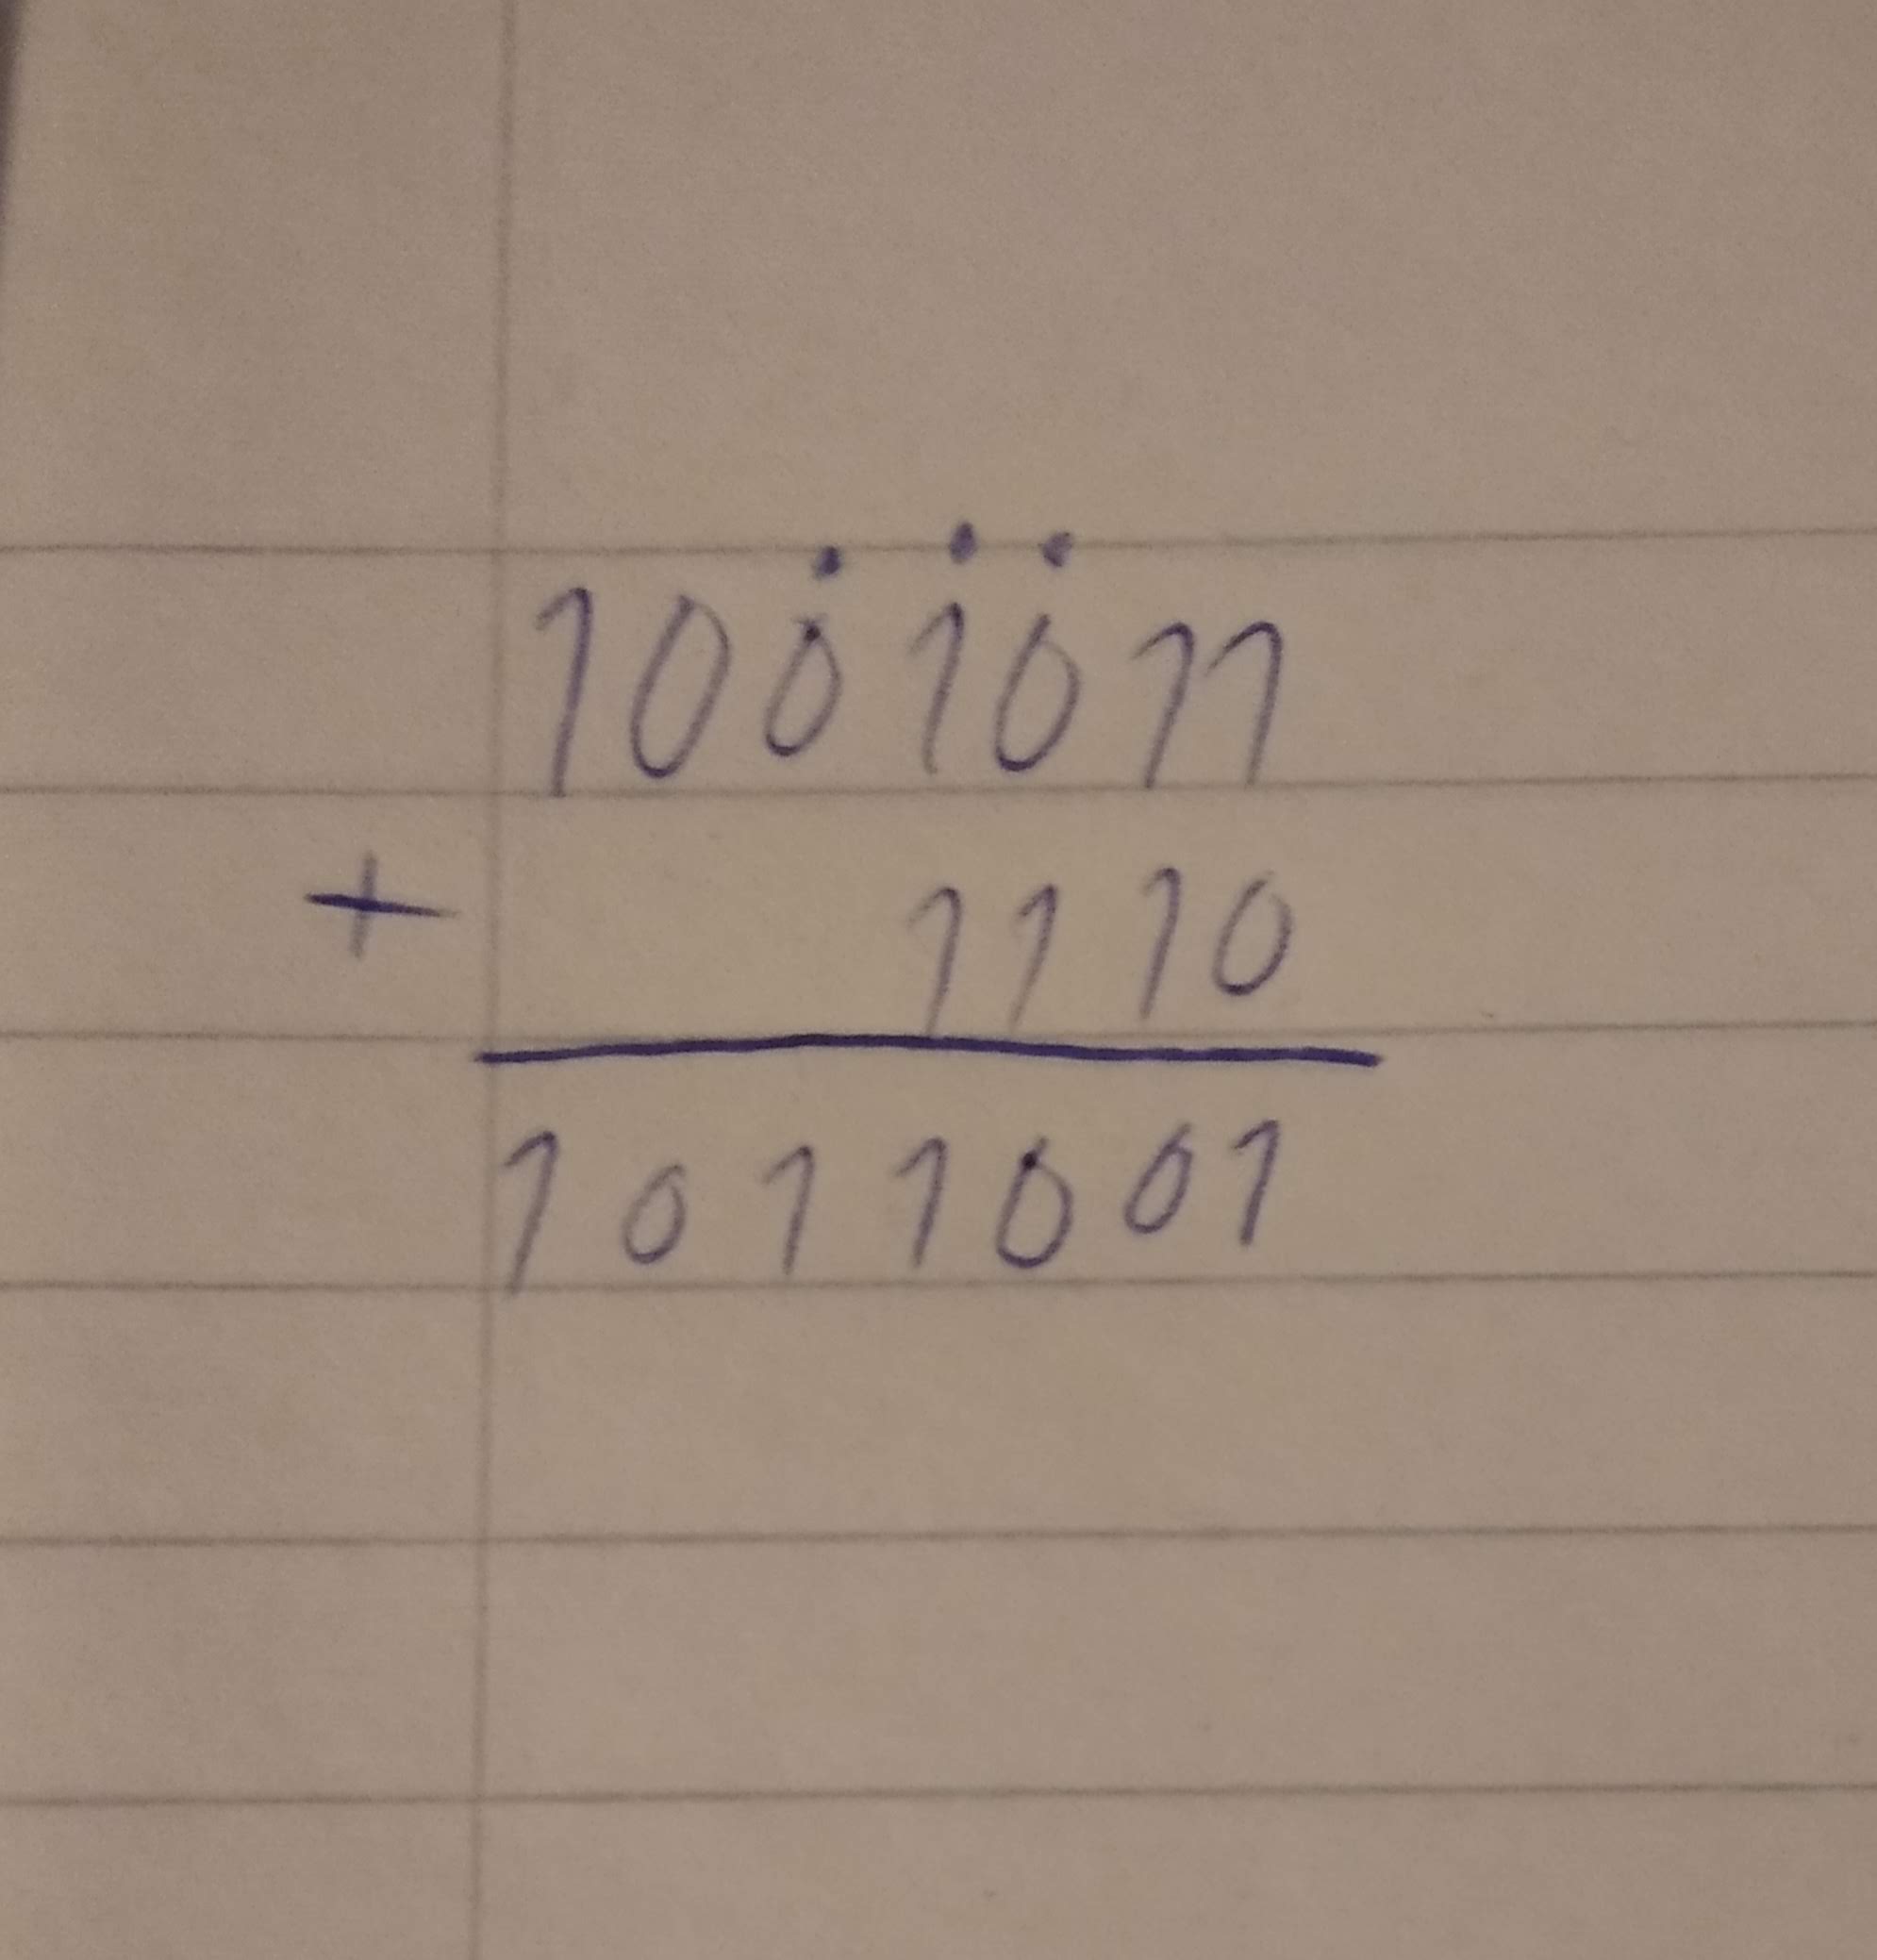 1001011
+ 1110
1011001